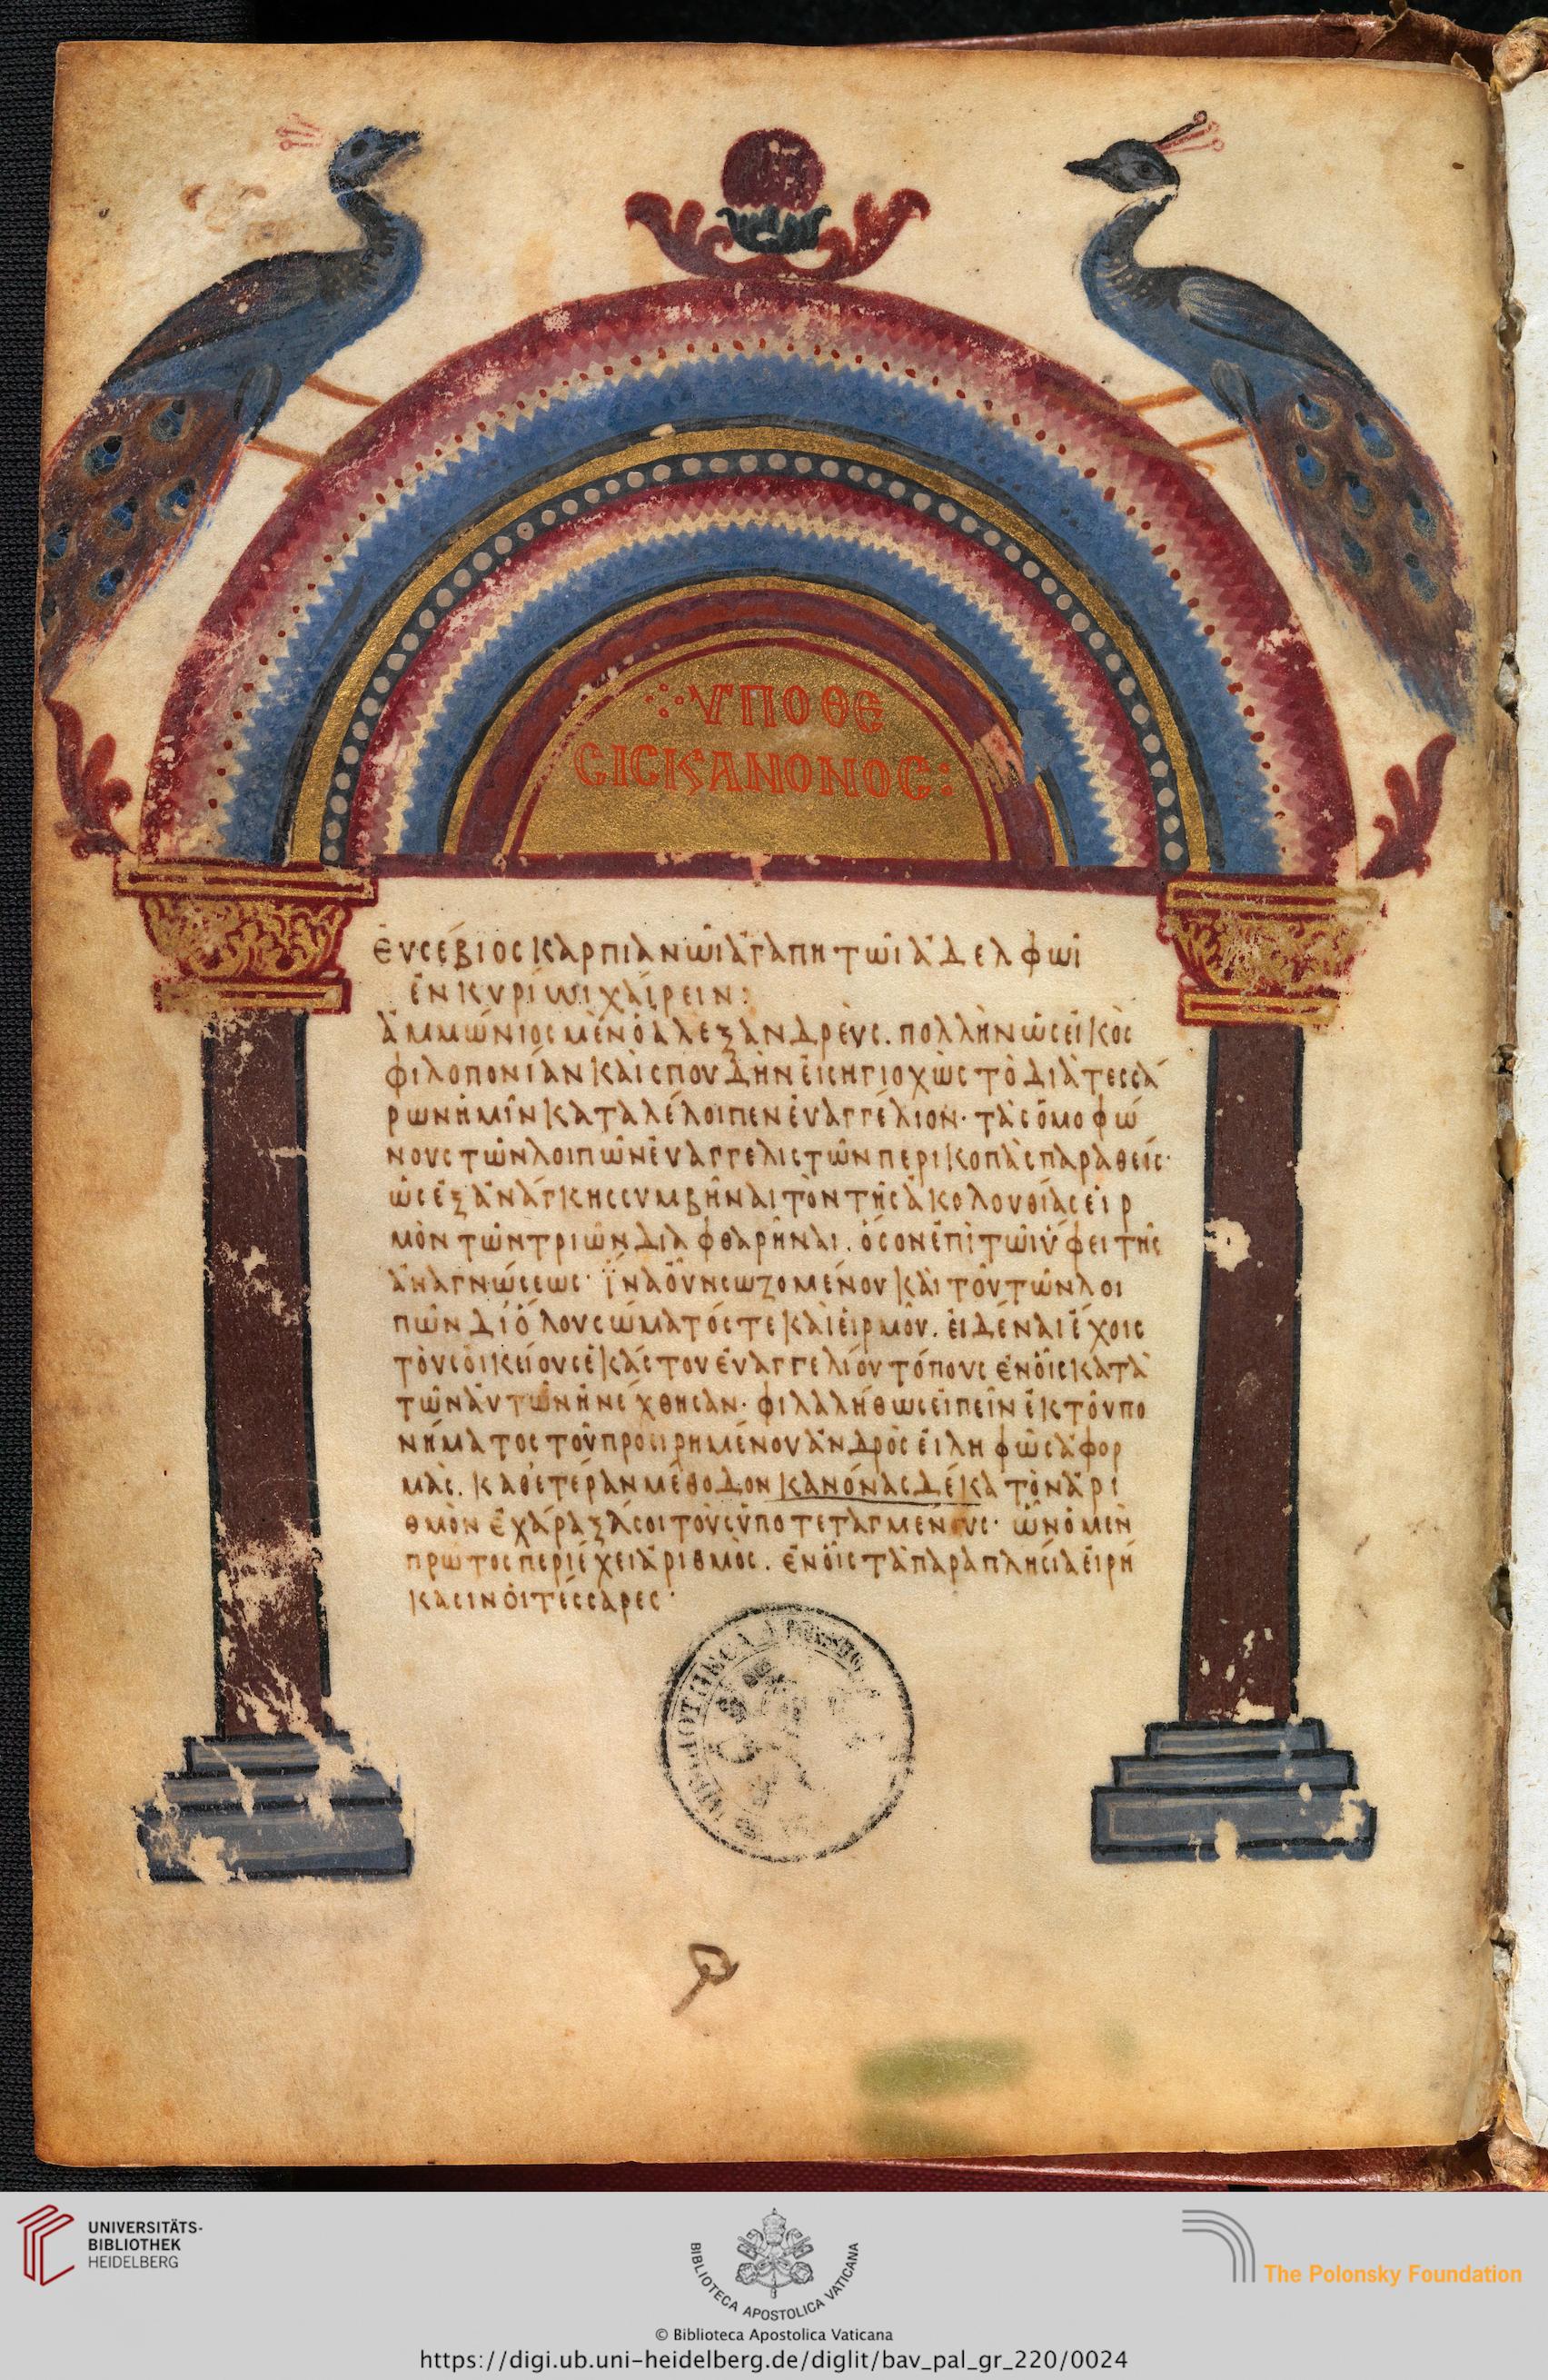 ὙΠΟΘΕ
CΙC ΚΑΝΟΝΟC:
ἐυσέβιος καρπιανῶι ἀγαπητῶι ἀδελφῶι
ἐν κυρίωι χαίρειν:
ἀμμώνιος μὲν ὁ ἀλεξανδρεὺς. πολλὴν ὡς εἰκὸς
φιλοπονίαν καὶ σπουδὴν εἰσηγιοχὼς τὸ διὰ τεσσά
ρων ἡμῖν καταλέλοιπεν ἐυαγγέλιον· τὰς ὁμοφώ
νους τῶν λοιπῶν ἐυαγγελιστῶν περικοπὰς παραθείς·
ὡς ἐξ ἀνάγκης συμβῆναι τὸν τῆς ἀκολουθίας εἱρ
μὸν τῶν τριῶν διαφθαρῆναι. ὅσον ἐπὶ τῶι ὕφει τῆς
ἀναγνώσεως· ἵνα οὖν σωζομένου καὶ τοῦ τῶν λοι
πῶν δι ὅλου σώματός τε καὶ εἱρμοῦ. εἰδέναι ἔχοις
τοὺς οἰκείους ἑκάστου ἐυαγγελίου τόπους ἐν οἷς κατὰ
τῶν αὐτῶν ἠνέχθησαν· φιλαλήθως εἰπεῖν ἐκ τοῦ πο
νήματος τοῦ προειρημένου ἀνδρὸς εἰληφὼς ἀφορ
μὰς. καθ ετέραν μέθοδον κανόνας δέκα τὸν ἀρι
θμὸν ἐχάραξά σοι τοὺς ὑποτεταγμένους· ὧν ὁ μὲν
πρῶτος περιέχει ἀριθμὸς. ἐν οἷς τὰ παραπλησία εἰρή
κασιν ὁι τέσσαρες·
UNIVERSITÄTS-
BIBLIOTHEK
HEIDELBERG
BIBLIOTECA APOSTOLICA VATICANA
The Polonsky Foundation
© Biblioteca Apostolica Vaticana
https://digi.ub.uni-heidelberg.de/diglit/bav_pal_gr_220/0024